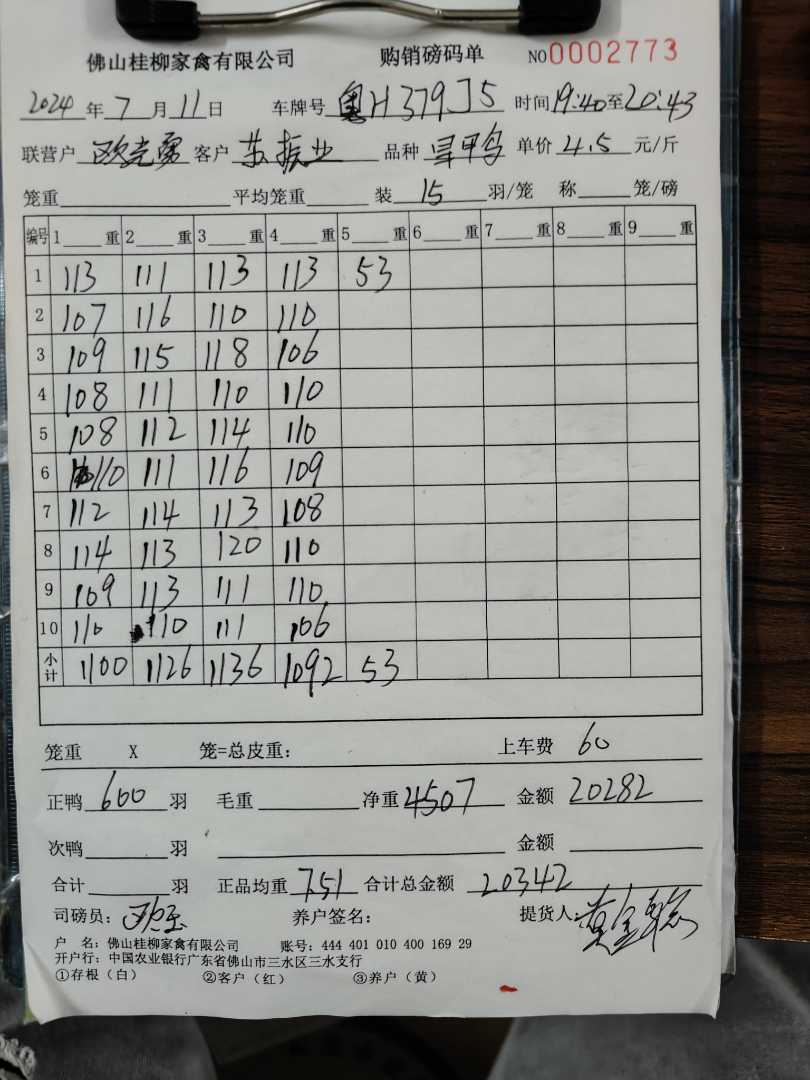 佛山桂柳家禽有限公司 购销磅码单 NO0002773
2024年7月11日 车牌号 粤H379J5 时间19:40至20:43
联营户 欧克勇 客户 苏振业 品种 单价 4.5 元/斤
笼重 平均笼重 装 15 羽/笼 称 笼/磅
编号 1 重 2 重 3 重 4 重 5 重 6 重 7 重 8 重 9 重
1 113 111 113 113 53
2 107 116 110 110
3 109 115 118 106
4 108 111 110 110
5 108 112 114 110
6 110 111 116 109
7 112 114 113 108
8 114 113 120 110
9 109 113 111 110
10 110 110 111 106
小计 1100 1126 1136 1092 53
笼重 X 笼=总皮重: 上车费 60
正鸭 600 羽 毛重 净重 4507 金额 20282
次鸭 羽 金额
合计 羽 正品均重 7.51 合计总金额 20342
司磅员: 养户签名: 提货人:
户 名: 佛山桂柳家禽有限公司 账号: 444 401 010 400 169 29
开户行: 中国农业银行广东省佛山市三水区三水支行
①存根(白) ②客户(红) ③养户(黄)